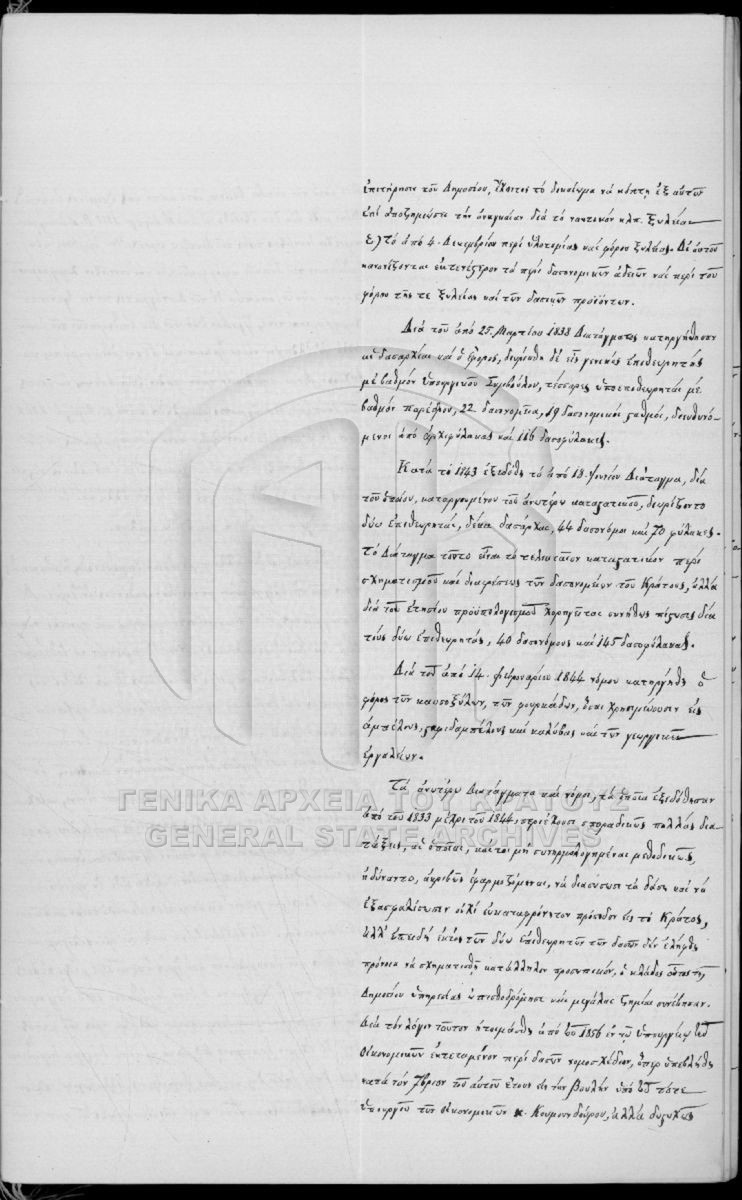 ἐπιτήρησιν τοῦ Δημοσίου, ἔχοντος τὸ δικαίωμα νὰ κόπτῃ ἐξ αὐτῶν
ἐπὶ ἀποζημιώσει τὴν ἀναγκαίαν διὰ τὸ ναυτικὸν κλπ. ξυλείαν
ς.) τὸ ἀπὸ 4. Δεκεμβρίου περὶ ὑλοτομίας καὶ φόρου ξυλείας. Δι' αὐτοῦ
κανονίζονται ἐκτενέστερον τὰ περὶ δασονομικῶν ἀδειῶν καὶ περὶ τοῦ
φόρου τῆς τε ξυλείας καὶ τῶν δασικῶν προϊόντων.
Διὰ τοῦ ἀπὸ 25. Μαρτίου 1838 Διατάγματος κατηργήθησαν
αἱ δασαρχίαι καὶ ὁ ἔφορος, διωρίσθη δὲ εἷς γενικὸς ἐπιθεωρητὴς
μὲ βαθμὸν ὑπουργικοῦ Συμβούλου, τέσσαρες ὑποεπιθεωρηταὶ μὲ
βαθμὸν παρέδρου, 22 δασονομεῖα, 19 δασονομικοὶ σταθμοί, διευθυνό-
μενοι ἀπὸ ἀρχιφύλακας καὶ 116 δασοφύλακες.
Κατὰ τὸ 1843 ἐξεδόθη τὸ ἀπὸ 18. Ἰουνίου Διάταγμα, διὰ
τοῦ ὁποίου, καταργουμένου τοῦ ἀνωτέρω καταστατικοῦ, διωρίζοντο
δύω ἐπιθεωρηταί, δέκα δασάρχαι, 44 δασονόμοι καὶ 70 φύλακες.
Τὸ Διάταγμα τοῦτο εἶναι τὸ τελευταῖον καταστατικὸν περὶ
σχηματισμοῦ καὶ διαιρέσεως τῶν δασονομείων τοῦ Κράτους, ἀλλὰ
διὰ τοῦ ἐτησίου προϋπολογισμοῦ χορηγεῖται συνήθως πίστωσις διὰ
τοὺς δύω ἐπιθεωρητάς, 40 δασονόμους καὶ 145 δασοφύλακας.
Διὰ τοῦ ἀπὸ 14. Φεβρουαρίου 1844 νόμου κατηργήθη ὁ
φόρος τῶν καυσοξύλων, τῶν φουρκάδων, ὅσαι χρησιμεύουσιν εἰς
ἀμπέλους, σταφιδαμπέλους καὶ καλύβας καὶ τῶν γεωργικῶν
ἐργαλείων.
Τὰ ἀνωτέρω Διατάγματα καὶ νόμοι, τὰ ὁποῖα ἐξεδόθησαν
ἀπὸ τοῦ 1833 μέχρι τοῦ 1844, περιέχουσι σποραδικῶς πολλὰς δια-
τάξεις, αἱ ὁποῖαι, καίτοι μὴ συνηρμολογημέναι μεθοδικῶς,
ἠδύναντο, ἀκριβῶς ἐφαρμοζόμεναι, νὰ διασώσωσι τὰ δάση καὶ νὰ
ἐξασφαλίσωσιν οὐχὶ εὐκαταφρόνητον πρόσοδον εἰς τὸ Κράτος,
ἀλλ' ἐπειδὴ ἐκτὸς τῶν δύω ἐπιθεωρητῶν τῶν δασῶν δὲν ἐλήφθη
πρόνοια νὰ σχηματισθῇ κατάλληλον προσωπικόν, ὁ κλάδος οὗτος τῆς
Δημοσίου ὑπηρεσίας ὠπισθοδρόμησε καὶ μεγάλαι ζημίαι συνέβησαν.
Διὰ τὸν λόγον τοῦτον ἡτοιμάσθη ἀπὸ τοῦ 1856 ἐν τῷ Ὑπουργείῳ τῶν
Οἰκονομικῶν ἐκτεταμένον περὶ δασῶν νομοσχέδιον, ὅπερ ὑπεβλήθη
κατὰ τὸν 7βριον τοῦ αὐτοῦ ἔτους εἰς τὴν Βουλὴν ὑπὸ τοῦ τότε
Ὑπουργοῦ τῶν Οἰκονομικῶν κ. Κουμουνδούρου, ἀλλὰ δυστυχῶς
ΓΕΝΙΚΑ ΑΡΧΕΙΑ ΤΟΥ ΚΡΑΤΟΥΣ
GENERAL STATE ARCHIVES